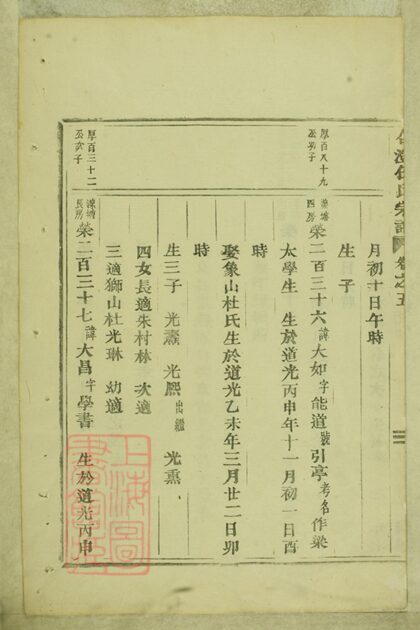 月初十日午時
生子
厚百八十九
公次子
四房
榮二百三十六諱大如字能道號引亭考名作梁
太學生 生於道光丙申年十一月初一日酉
時
娶象山杜氏生於道光乙未年三月廿二日卯
時
生三子 光燾 光熙出繼 光熏
四女長適朱村林 次適
三適獅山杜光琳 幼適
厚百三十二
公次子
長房
榮二百三十七諱大昌字學書 生於道光丙申
上海圖書館藏